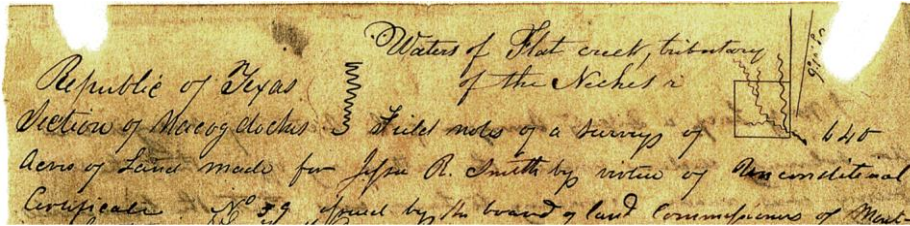 Waters of Flat creek, tributary
of the Neches r
Republic of Texas
Section of Nacogdoches Field notes of a survey of 640
Acres of Land made for Jesse R. Smith by virtue of Unconditional
Certificate No 39 issued by the board of land Commissioners of Mont-